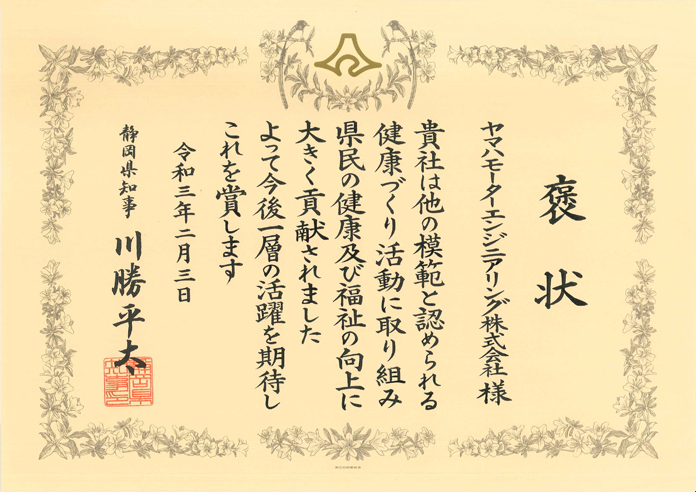 褒状
ヤマハモーターエンジニアリング株式会社 様
貴社は他の模範と認められる
健康づくり活動に取り組み
県民の健康及び福祉の向上に
大きく貢献されました
よって今後一層の活躍を期待し
これを賞します
令和三年二月三日
静岡県知事 川勝平太